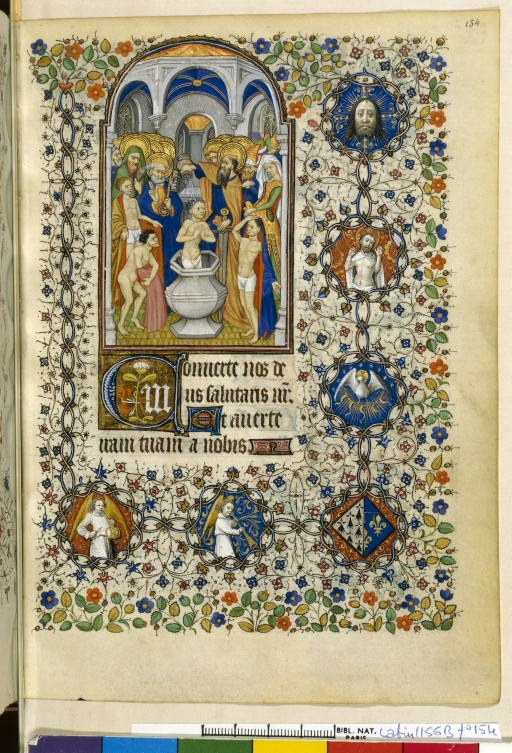 154
Conuerte nos de
us salutaris nr̄.
Et auerte
iram tuam a nobis
BIBL. NAT.
PARIS
Latin 1156B fo 154